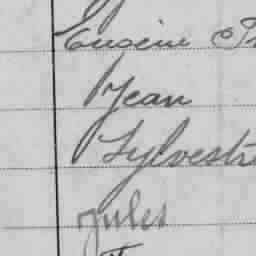 Eugène
Jean
Sylvestre
Jules